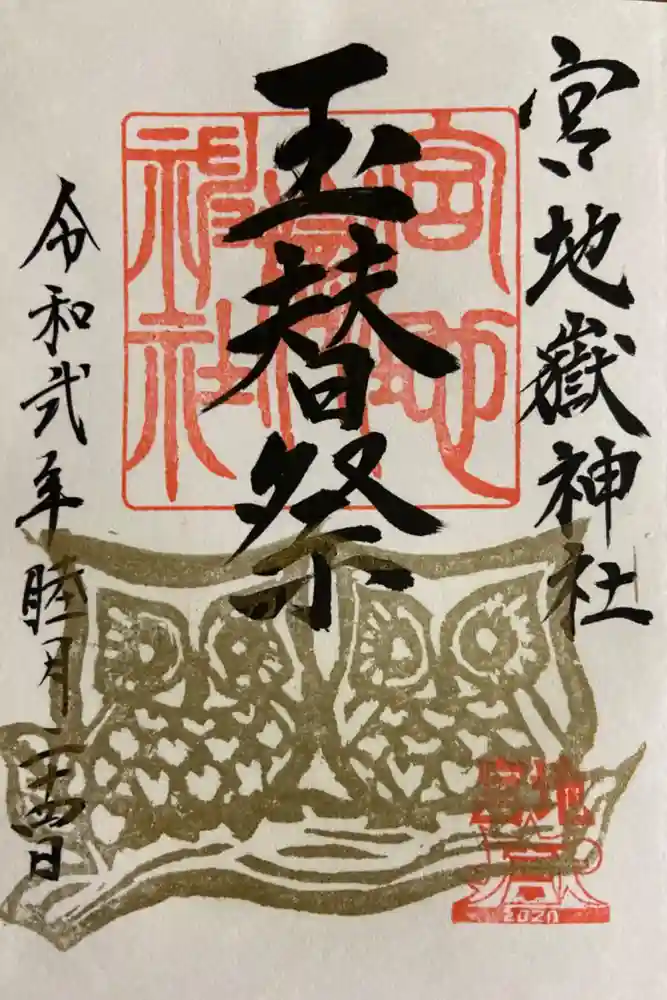 宮地嶽神社
玉替祭
宮地嶽神社
令和弐年睦月二十四日
宮地
嶽
2020